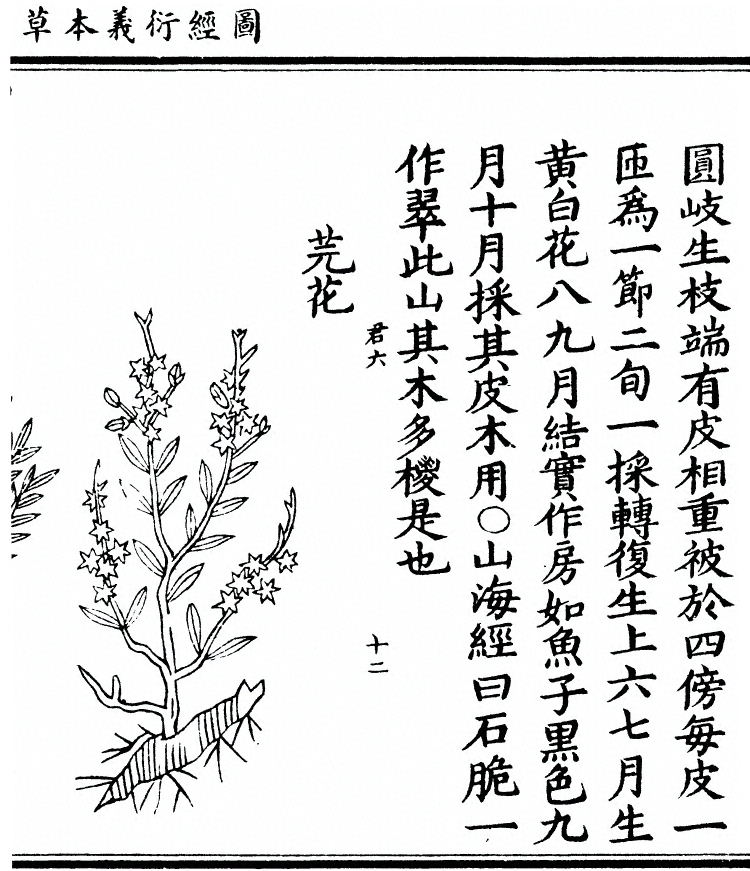 圖經衍義本草
圓岐生枝端有皮相重被於四傍每皮一
匝爲一節二旬一採轉復生上六七月生
黄白花八九月結實作房如魚子黒色九
月十月採其皮木用○山海經曰石脆一
作翠此山其木多椶是也
君六
十二
芫花